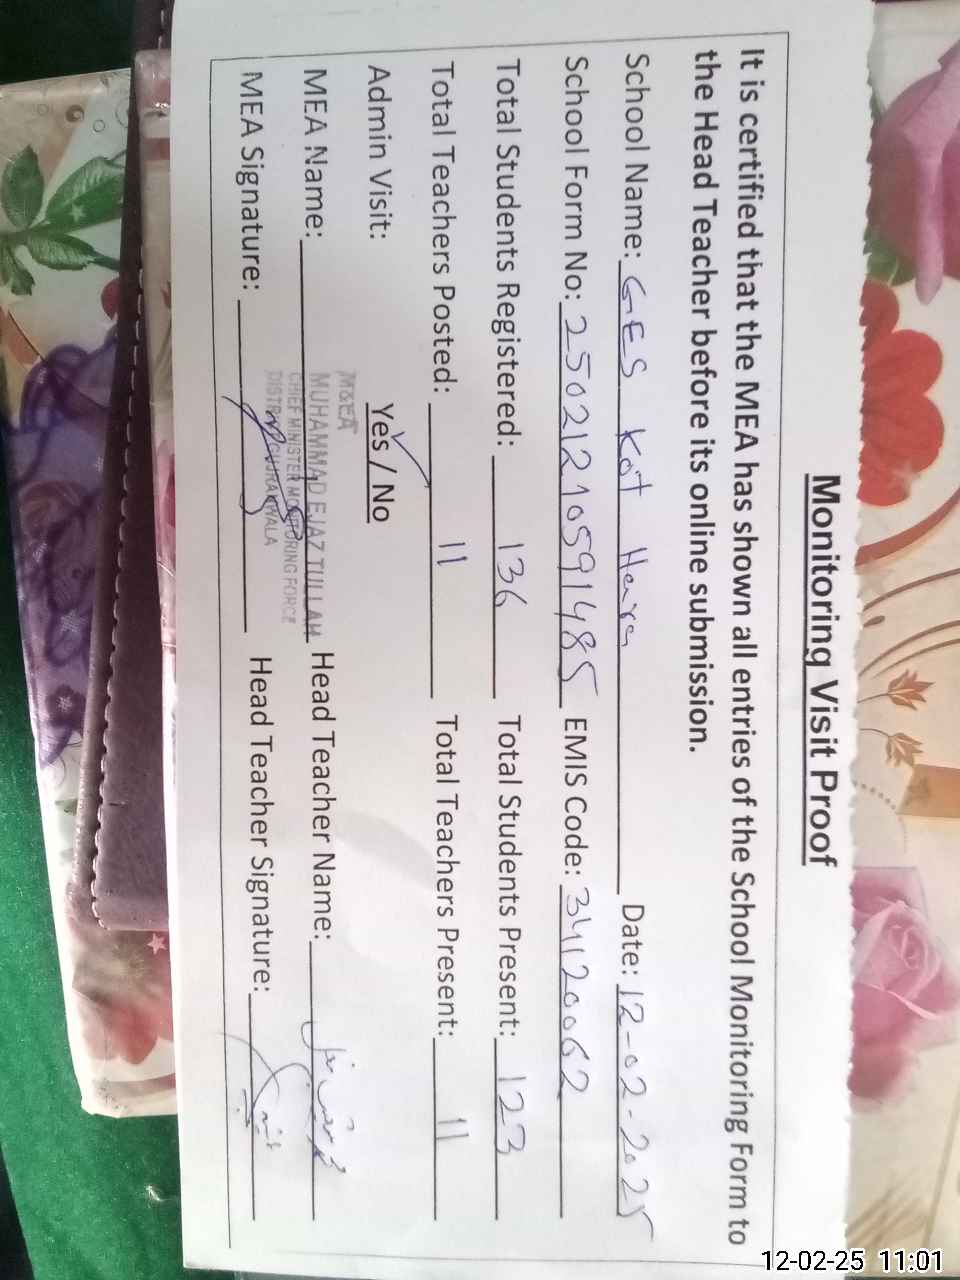 Monitoring Visit Proof
It is certified that the MEA has shown all entries of the School Monitoring Form to
the Head Teacher before its online submission.
School Name: GES Kot Henra Date: 12-02-2025
School Form No: 25021210591485 EMIS Code: 34120062
Total Students Registered: 136 Total Students Present: 123
Total Teachers Posted: 11 Total Teachers Present: 11
Admin Visit: Yes / No
M&EA
MEA Name: MUHAMMAD EJAZ TULLAH Head Teacher Name:
CHIEF MINISTER MONITORING FORCE
MEA Signature: DISTRICT GUJRANWALA Head Teacher Signature:
12-02-25 11:01